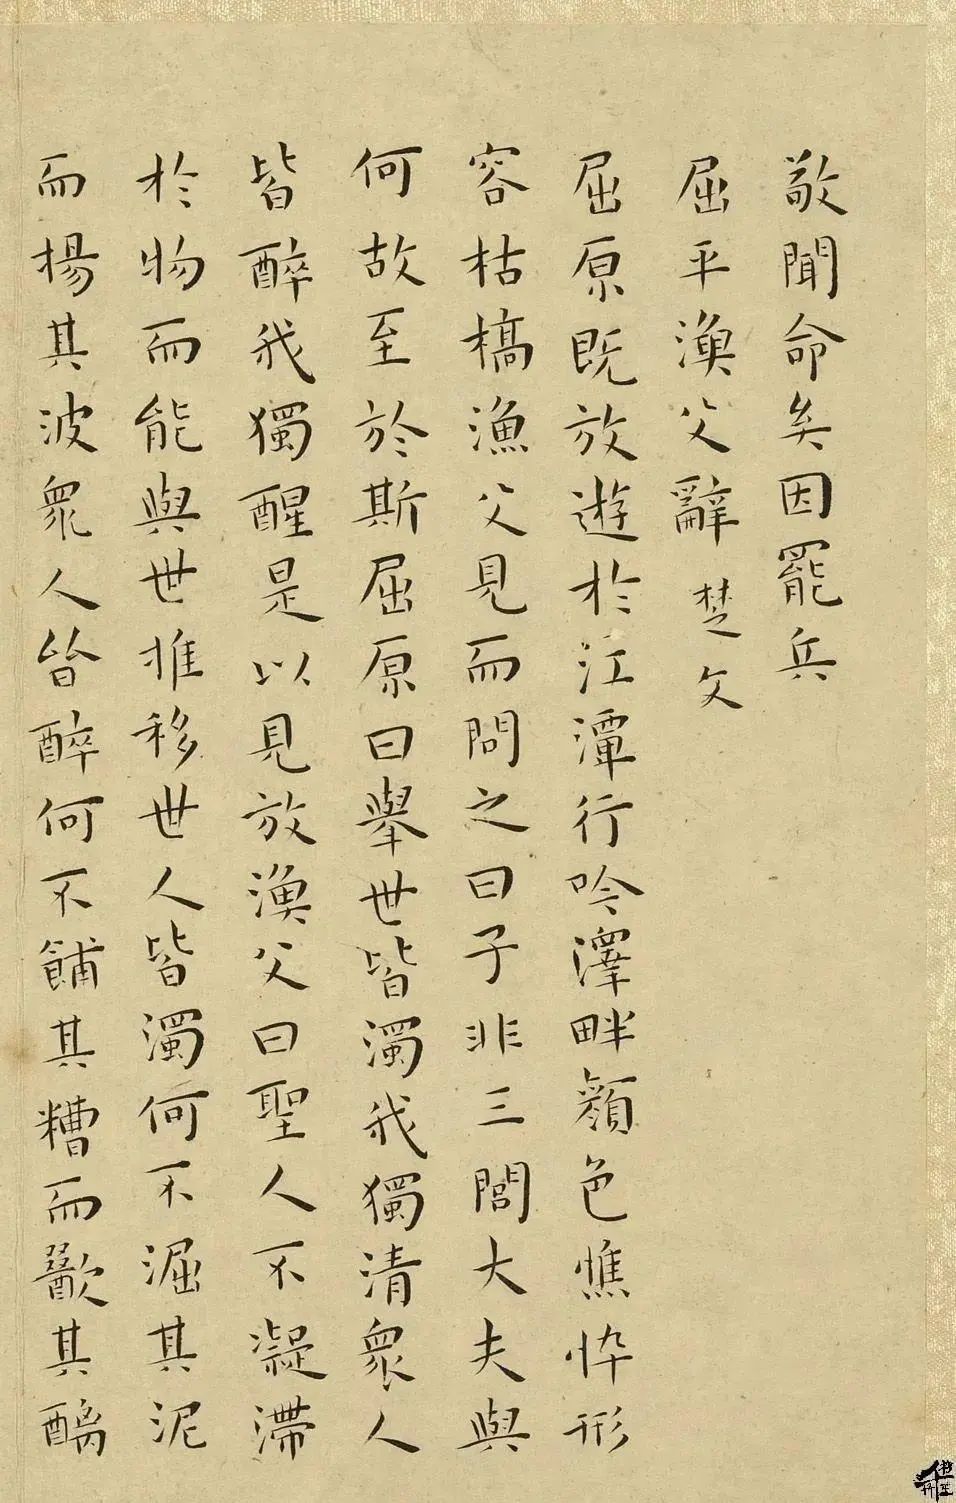 敬聞命矣因罷兵
屈平漁父辭 楚文
屈原既放遊於江潭行吟澤畔顏色憔悴形
容枯槁漁父見而問之曰子非三閭大夫與
何故至於斯屈原曰舉世皆濁我獨清衆人
皆醉我獨醒是以見放漁父曰聖人不凝滯
於物而能與世推移世人皆濁何不淈其泥
而楊其波衆人皆醉何不餔其糟而歠其醨